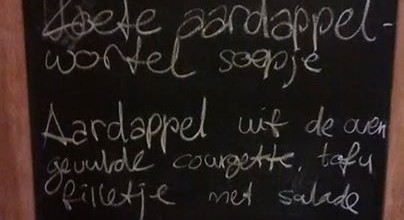 Zoete aardappel-
wortel soepje
Aardappel uit de oven
gevulde courgette, tofu
filletje met salade